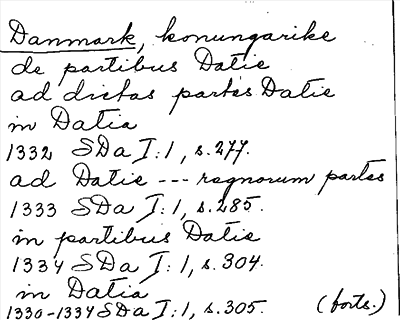 Danmark, konungarike
de partibus Datie
ad dictas partes Datie
in Datia
1332 SDa I:1, s.277.
ad Datie --- regnorum partes
1333 SDa I:1, s.285.
in partibus Datie
1334 SDa I:1, s.304.
in Datia
1330-1334 SDa I:1, s.305. (forts.)